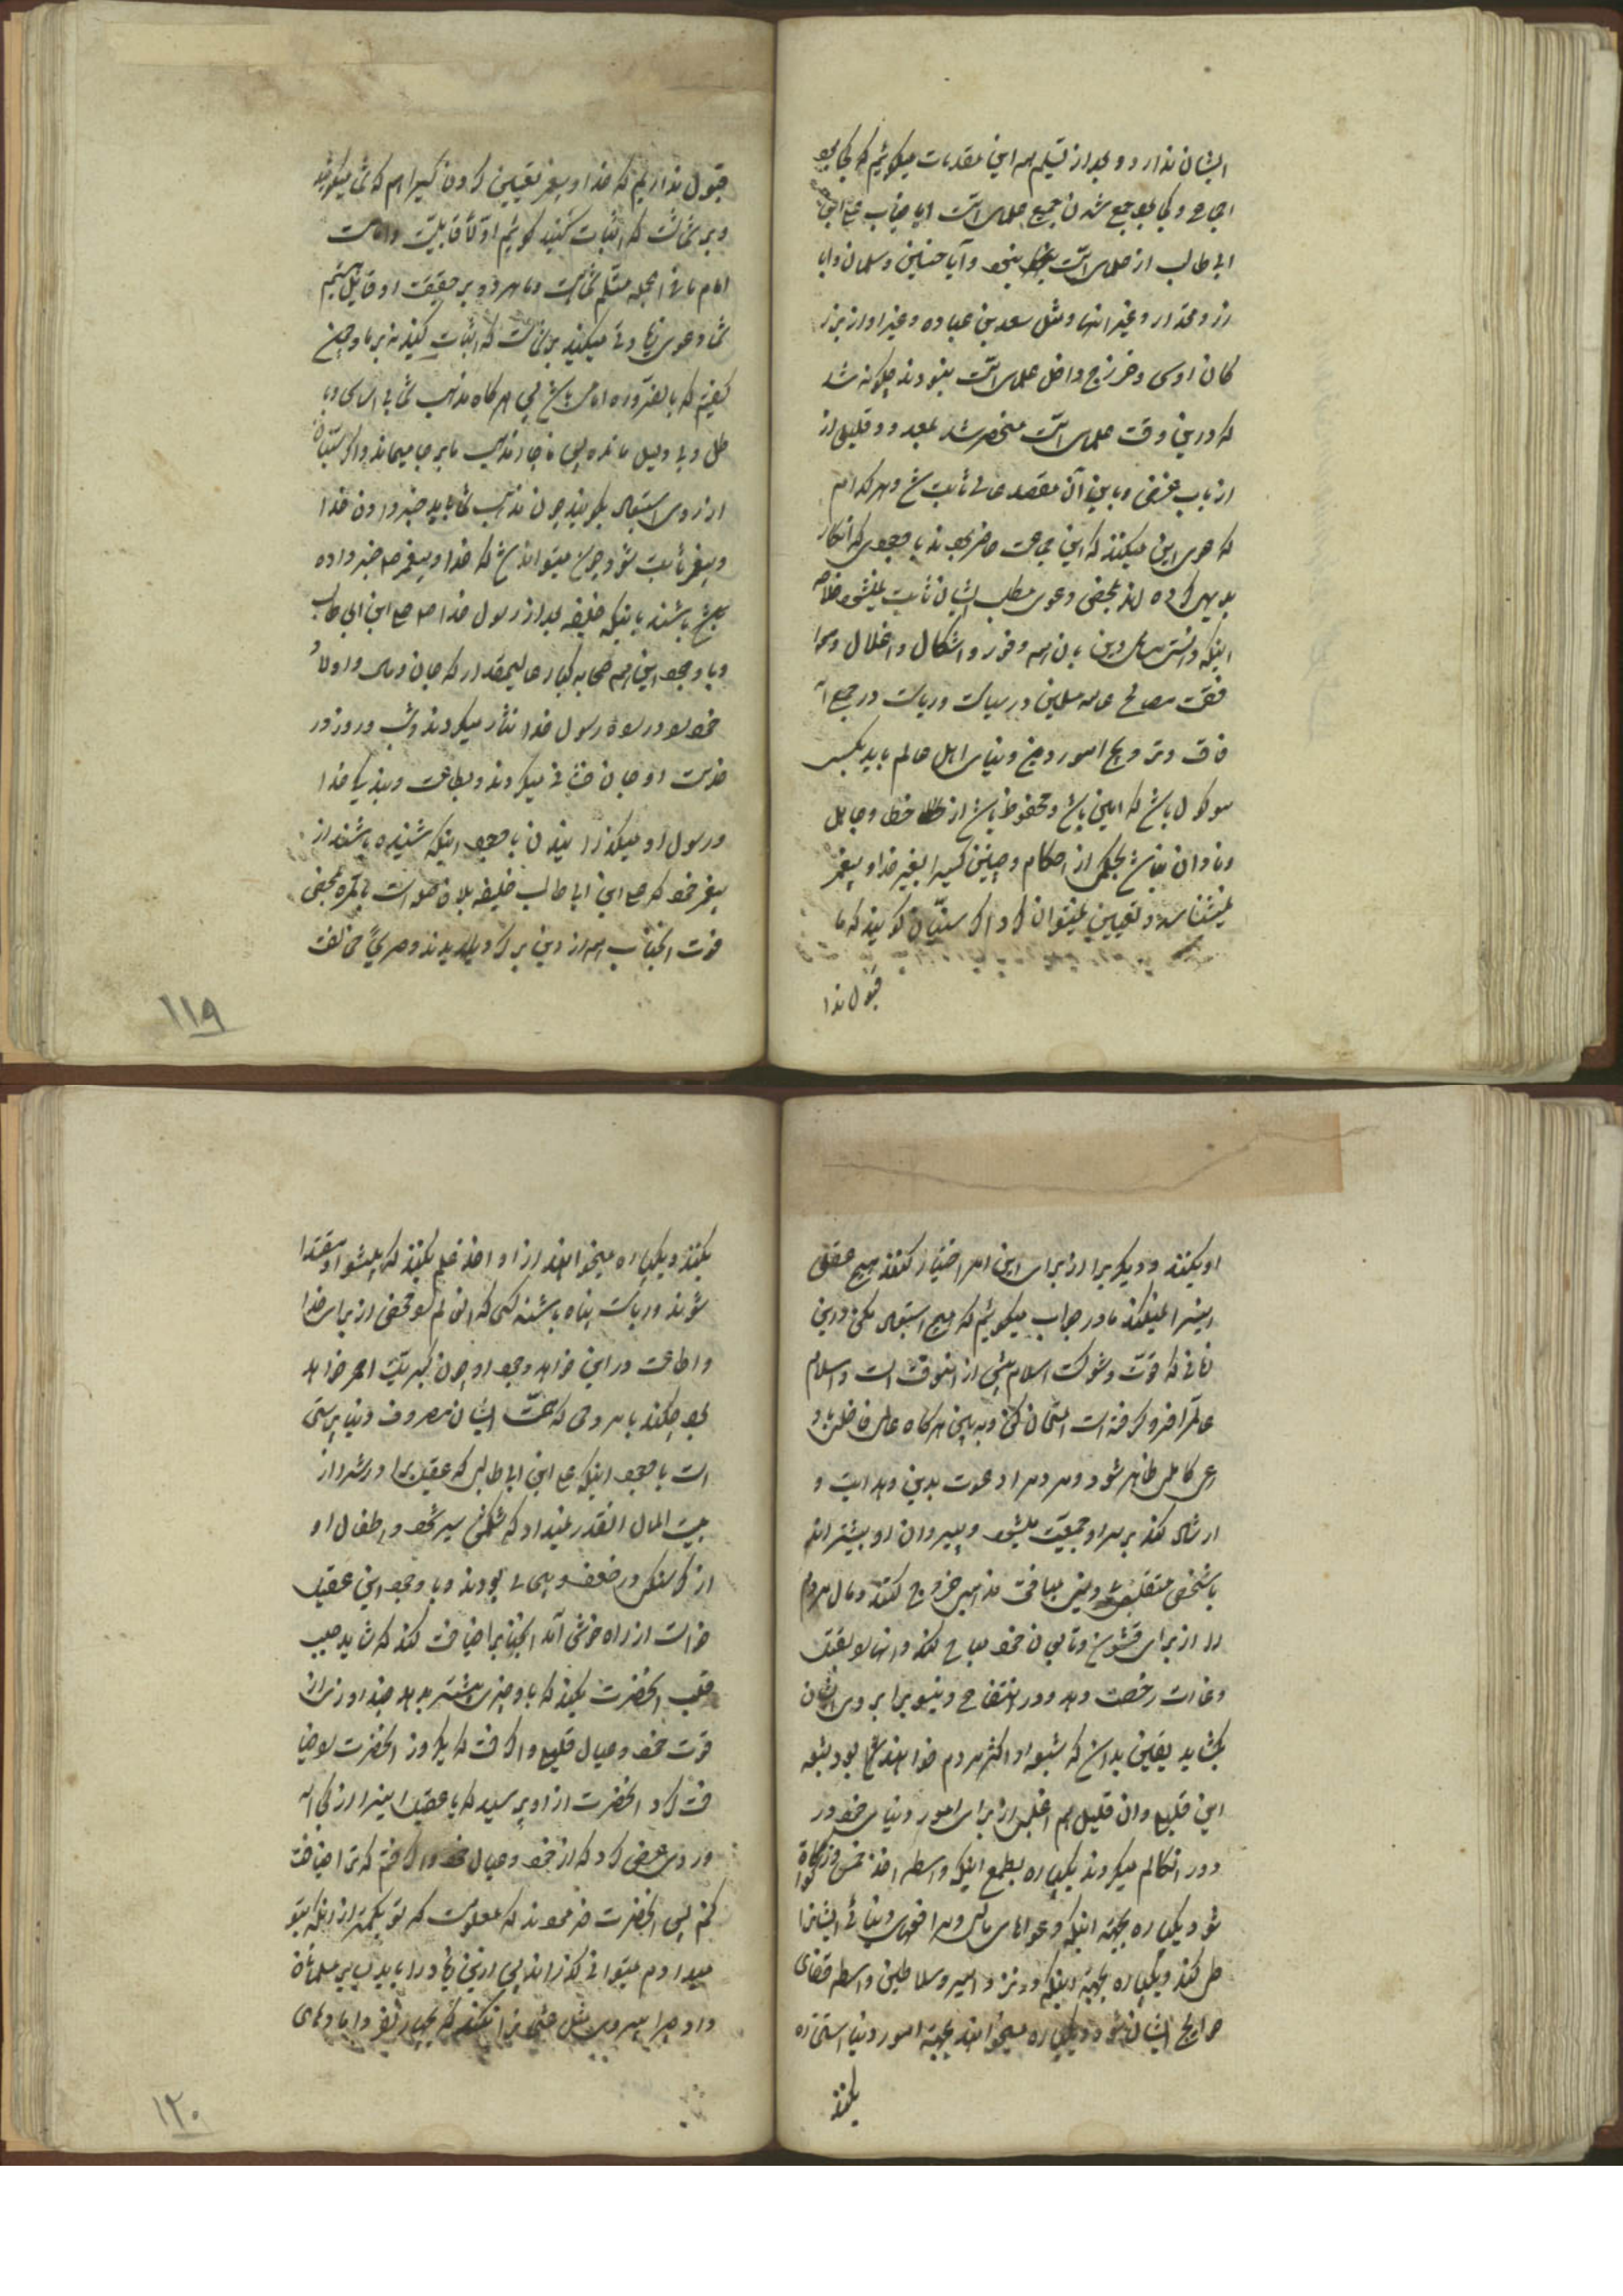 ایشان ندارد و بعد از تسلیم همه این مقدمات میگوئیم که کجا بود
اجماع و کجا بود جمع شدن جمیع علمای امت ایا جناب علی ابن
ابی طالب از علمای امت نبود و آیا حسنین و سلمان و ابا
ذر و مقداد و غیر انها و مثل سعد بن عباده و غیر او از بزر
کان اوس و خزرج داخل علمای امت نبودند چکونه شد
که در این وقت علمای امت منحصر شد بمعدود قلیلی از
ارباب غرض و باین آن مقصد عالی ثابت شد و هر کدام
که دعوی این میکنند که این جماعت حاضر بودند با وجودی که انکار
بدیهی کرده اند بمحض دعوی مطلب ایشان ثابت نمیشود خلاصه
اینکه دانستن مسائل دین بان همه وفور و اشکال و اغلال و موا
فقت مصالح عامه مسلمین در سیاست و ریاست در جمیع آ
فاق و ترویج امور دین و دنیای اهل عالم باید بکسی
موکول باشد که امین باشد و محفوظ باشد از خطا و جاهل
و نادان نباشد بحکمی از احکام و چنین کسیرا بغیر خدا و پیغمبر
نمیشناسد و تعیین نمیتوان کرد اکر سنیان کویند که ما
قبول ندا
قبول نداریم که خدا و پیغمبر تعیین کردن کسیرا هم که شما میکوئید
و بر شماست که اثبات کنید کوئیم اولا قابلیت و امامت
امام ما فی الجمله مسلم شماست و ما هر دو بر حقیقت او قایل هستیم
شما دعوی زیادتی میکنید بر شماست که اثبات کنید نه بر ما و چنین
کفتیم که بالضروره امامی باید باشد پس هر کاه مذهب شما بی اساس و با
طل و بی دلیل مانده پس ناچار مذهب ما بر جا میماند و اکر سنیان
از روی استبعاد بکویند چون مذهب شما باید خبر دادن خدا
و پیغمبر ثابت شود چون میتواند شد که خدا و پیغمبر ص خبر داده
باشند باینکه خلیفه بعد از رسول خدا ص علی ابن ابی طالب
و با وجود این همه صحابه کبار عالیمقدار که جان و مال و اولاد
خود را در راه رسول خدا نثار میکردند و شب و روز در
خدمت او جان فشانی میکردند و بطاعت و بندیکی خدا
و رسول او میکذرانیدند با وجود اینکه شنیده باشند از
پیغمبر خود که علی ابن ابی طالب خلیفه بلا فصل اوست بالمره بمحض
فوت انجناب همه از دین برکردیدند و صریحا مخالفت
۱۱۹
او بکنند و دیکریرا از برای این امر اختیار کنند هیچ عقلی
اینرا نمیکند ما در جواب میکوئیم که هیچ استبعاد مکن در این
زمانی که قوت و شوکت اسلام بیش از انوقت است و اسلام
عالمرا فرو کرفته است امتحان کن و به بین هر کاه عالم فاضل باد
رعی کاملی ظاهر شود و مردمرا دعوت بدین و هدایت و
ارشاد کند بر سر او جمعیت میشود و پیروان او بیشتراند
یا شخصی متقلبی بیدینی بیاید خروج کند و مال مردم
را از برای قشون و تابعان خود مباح کند و انها را بفسق
و غارت رخصت دهد و در انتفاع دنیویرا بروی ایشان
بکشاید یقین بدان که شیوه او اکثر مردم خواهند شد بود بتبعه
این قلیل و ان قلیل هم اغلب از برای امور دنیای خود در
دور انعالم میکردند یکپاره بطمع اینکه واسطه اخذ خمس و زکوة
شود و یکپاره بجهة اینکه دعواهای مالی و مرافعهای دنیائی ایشانرا
طی کند و یکپاره بجهة اینکه در نزد امیر و سلاطین واسطه قضای
حوایج ایشان شود و یکپاره میخواهند بجهة امور دنیا استخاره
بکنند
بکنند و یکپاره میخواهند از او اخذ علم بکنند که پیشوا و مقتدا
شوند و ریاست پناه باشند کسی که انعالم را محض از برای خدا
و اطاعت در این خواهد وجود او چون کبریت احمر خواهد
بود چکند با مردمی که همت ایشان مصروف دنیا پرستی
است با وجود اینکه علی ابن ابی طالب که عقیل برادرش از
بیت المال انقدر نمیداد که شکمش سیر شود و اطفال او
از کرسنکی در ضعف و بیحالی بودند و با وجود این عقیل
خواست از راه خوش آمد انجنابرا ضیافت کند که شاید جلب
قلب انحضرت بکند که باو چیزی بیشتر بدهد چند روز از
قوت خود و عیال قلیلی واکرفت که یکروز انحضرت را ضیا
فت کرد انحضرت از او پرسید که یا عقیل اینرا از کجا آ
وردی عرض کرد که از خود و عیال خود واکرفتم که ترا ضیافت
کنم پس انحضرت فرمودند که معلومست که تو بکمتر از اینکه بتو
میدادم میتوانی کذراند پس ازین زیاد را باید بسایر مسلمانان
داد چرا پیروی مثل عثمانی را نکنند که چهار نفر داماد های
۱۲۰